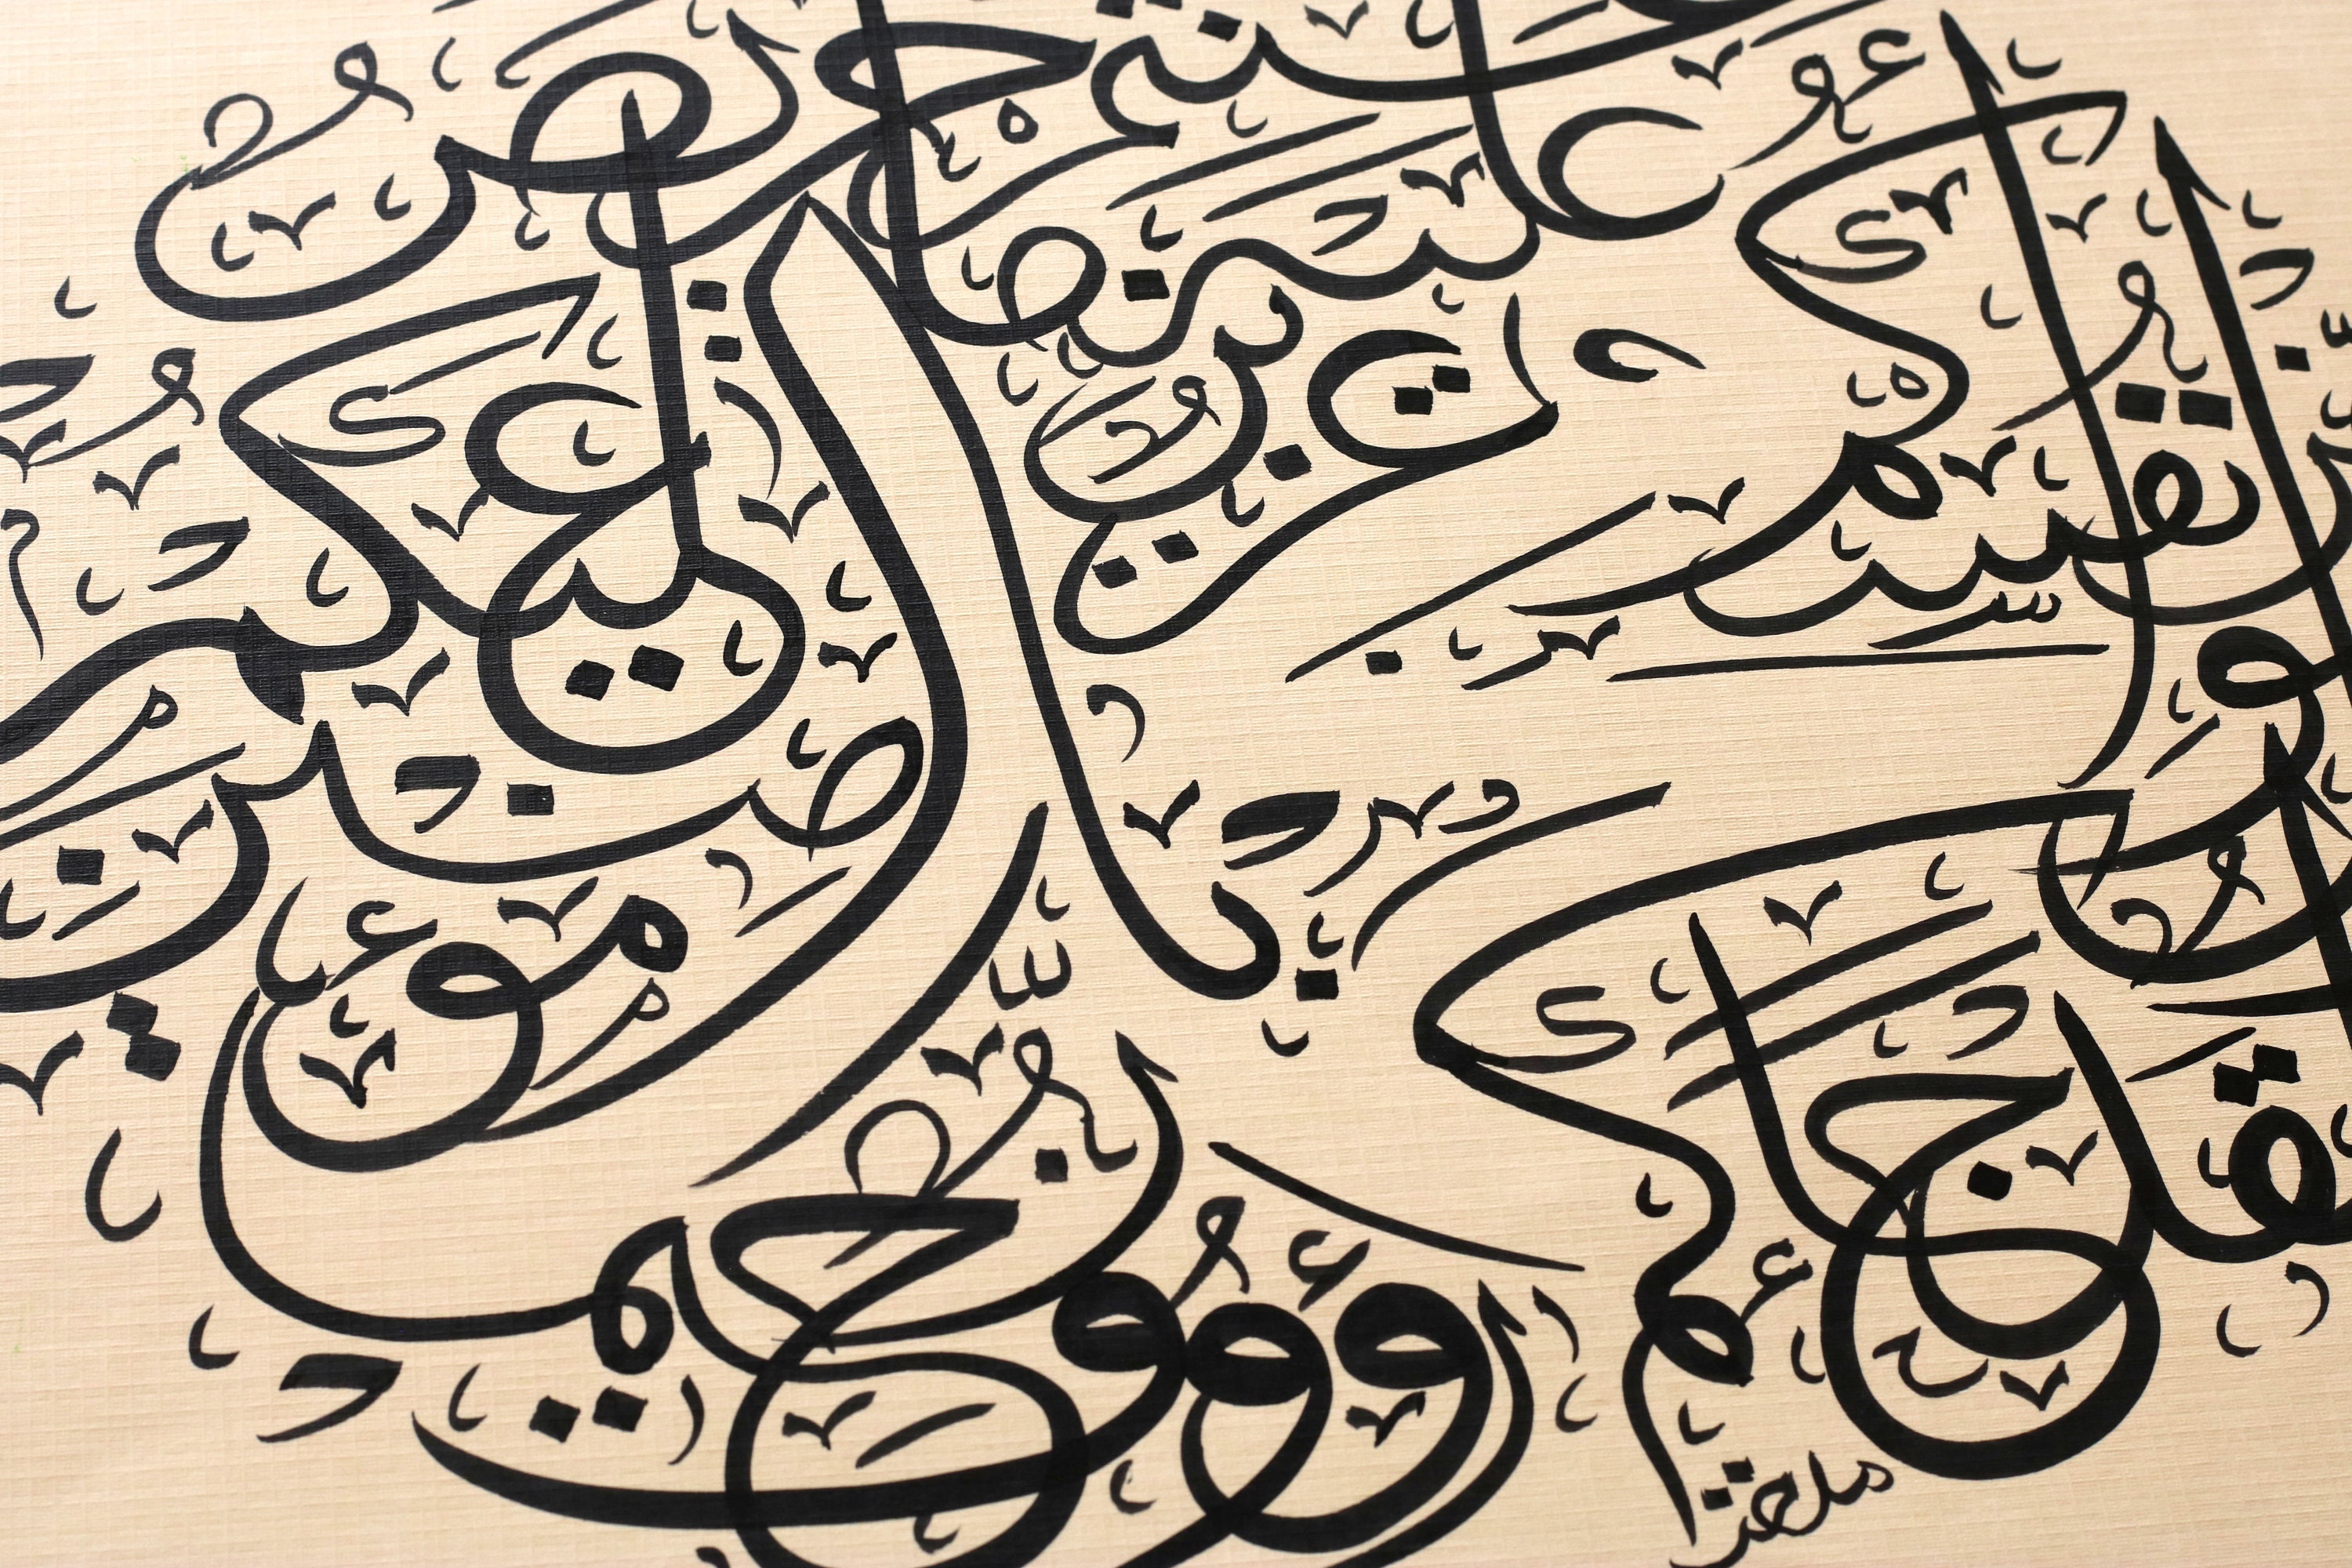 لقد جاءكم رسول
من أنفسكم
عزيز عليه ما عنتم
حريص عليكم
بالمؤمنين
رؤوف رحيم